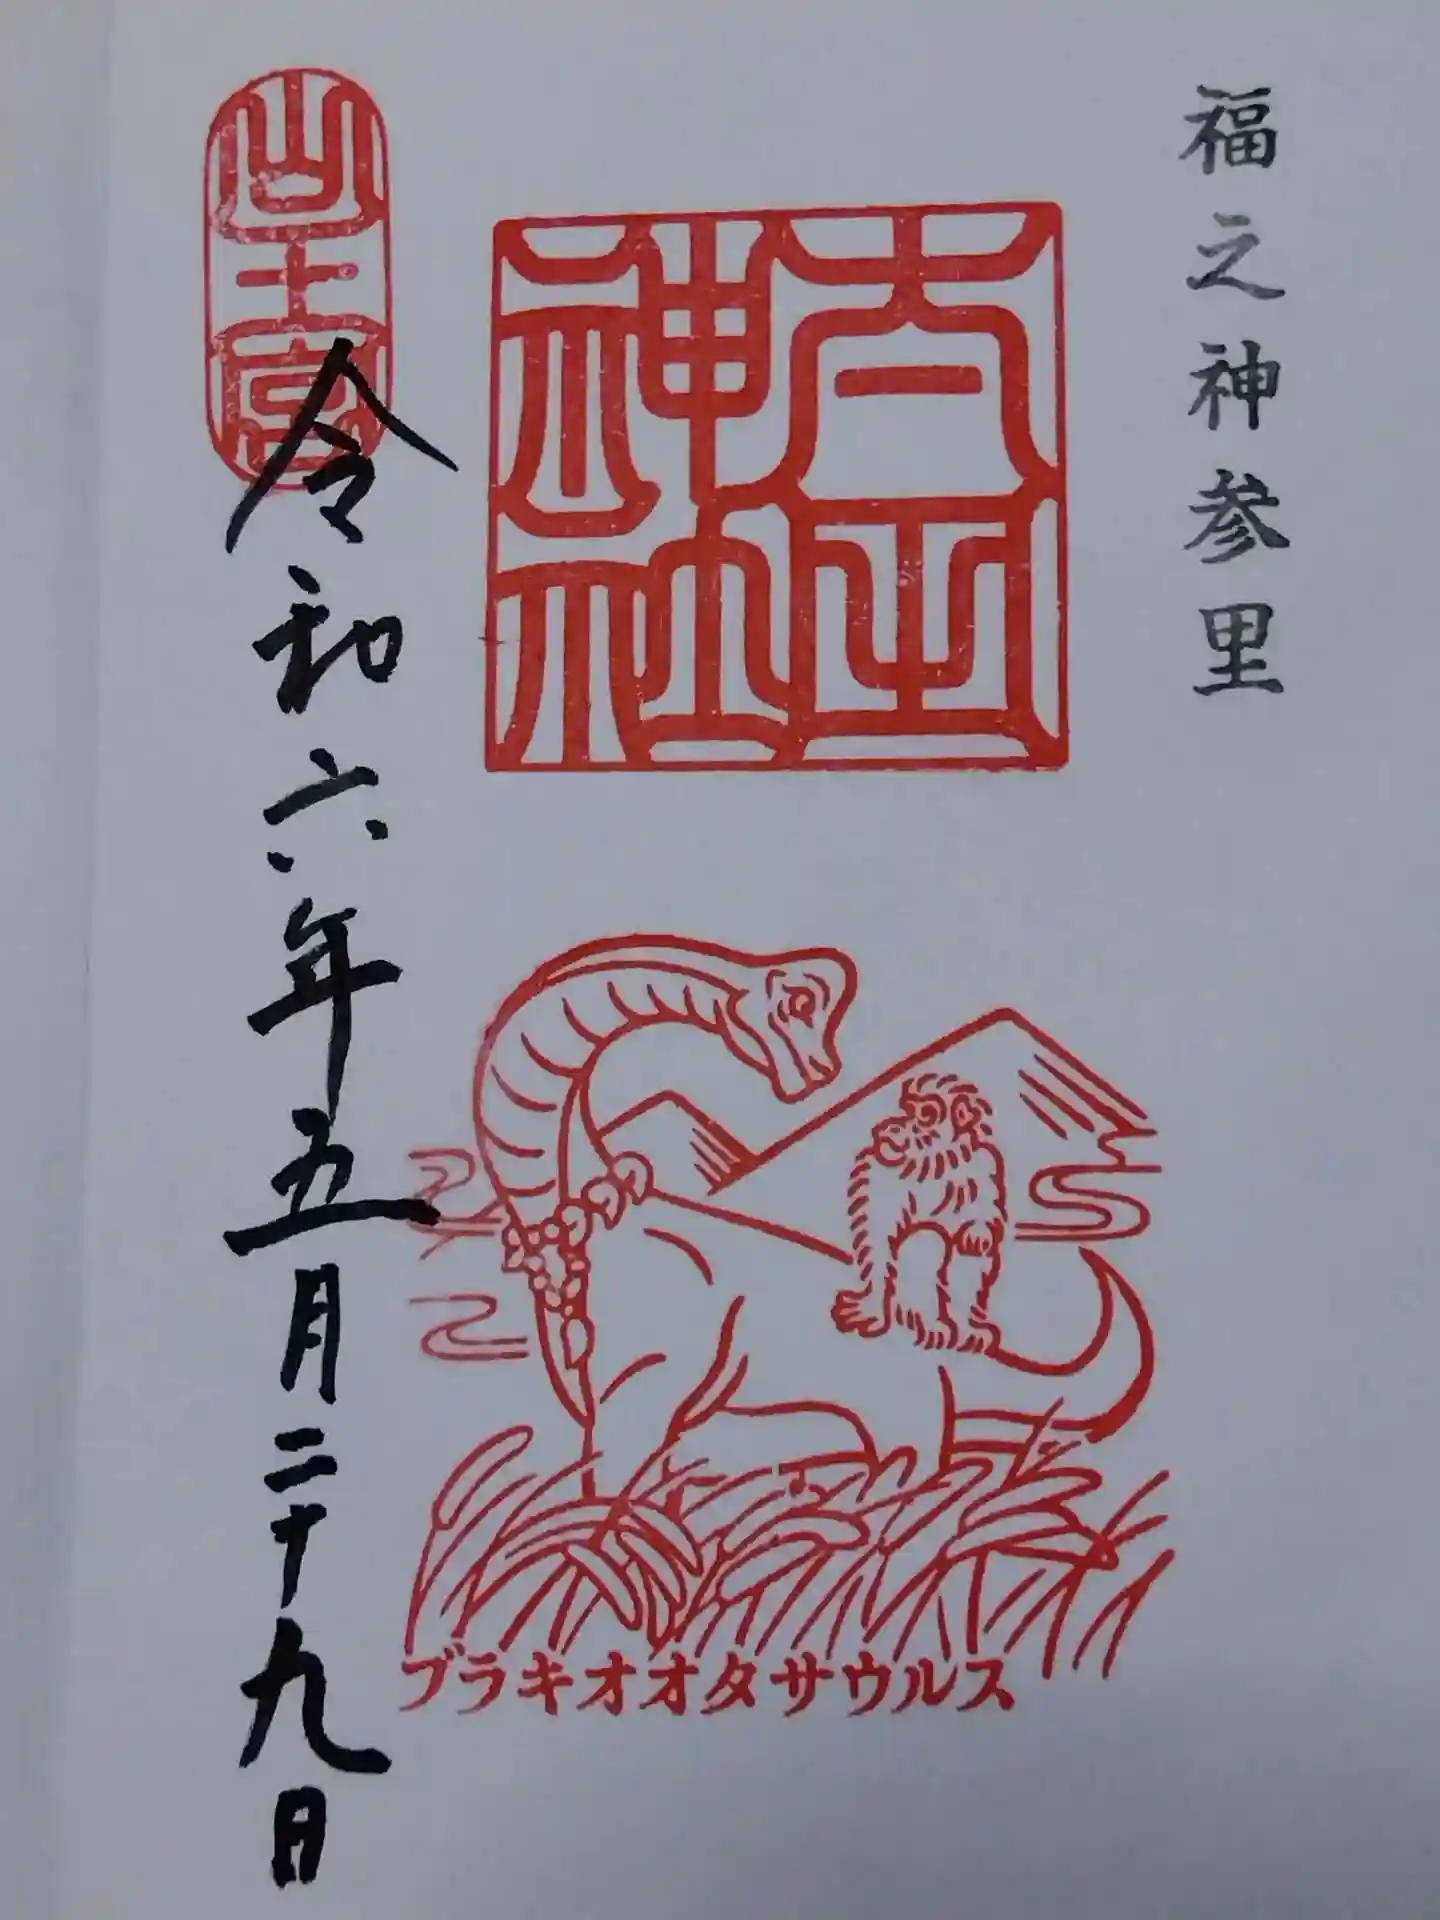 福之神参里
神社
山王宮
令和六年五月二十九日
ブラキオオタサウルス